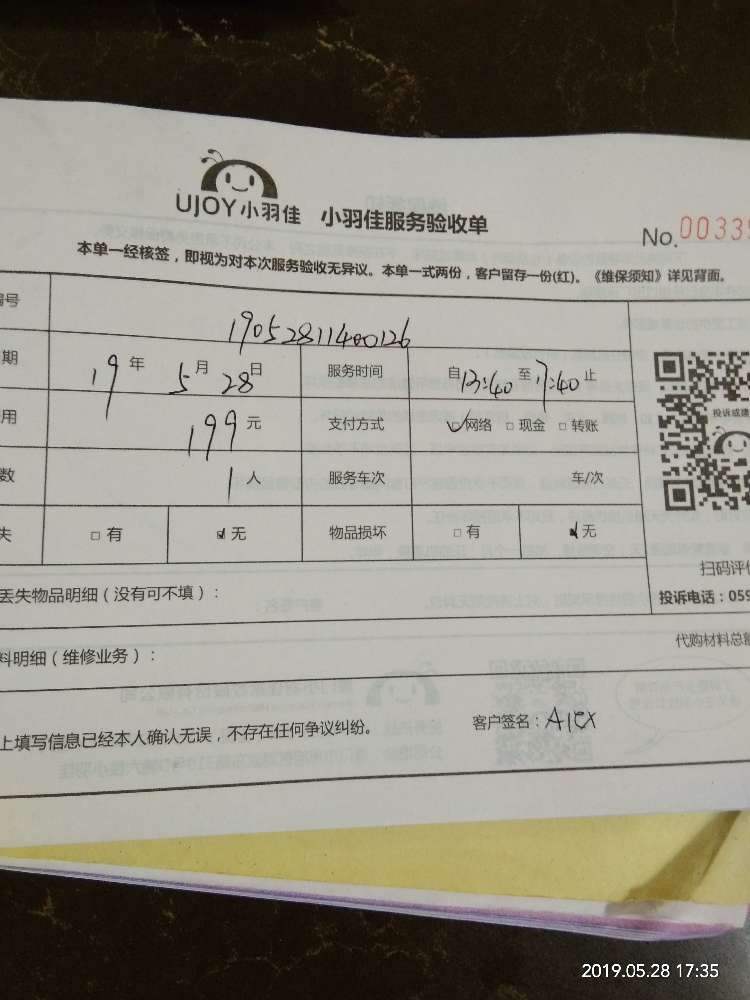 UJOY小羽佳 小羽佳服务验收单
No.00339
本单一经核签，即视为对本次服务验收无异议。本单一式两份，客户留存一份(红)。《维保须知》详见背面。
编号 1905281140126
期 19年5月28日 服务时间 自13:40至17:40止
用 199元 支付方式 ☑网络 □现金 □转账
数 1人 服务车次 车/次
失 □有 ☑无 物品损坏 □有 ☑无
投诉或建
扫码评价
投诉电话：059
丢失物品明细（没有可不填）：
代购材料总额
料明细（维修业务）：
上填写信息已经本人确认无误，不存在任何争议纠纷。 客户签名：Alex
2019.05.28 17:35